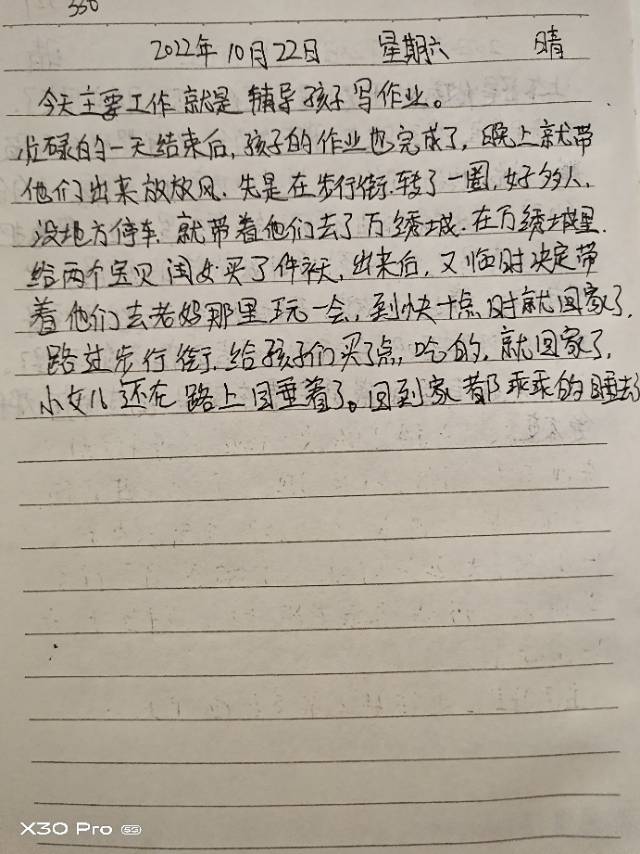 330
2022年10月22日 星期六 晴
今天主要工作就是辅导孩子写作业。
忙碌的一天结束后,孩子的作业也完成了,晚上就带
他们出来放放风.先是在步行街.转了一圈,好多人,
没地方停车.就带着他们去了万绣城.在万绣城里.
给两个宝贝闺女买了件衬衣,出来后,又临时决定带
着他们去老妈那里玩一会,到快十点时就回家了,
路过步行街.给孩子们买了点,吃的,就回家了,
小女儿还在路上睡着了。回到家都乖乖的睡去了
X30 Pro 5G